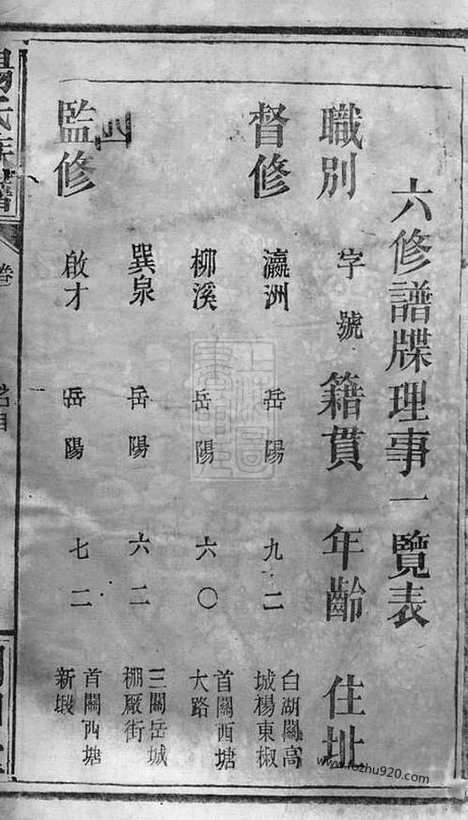 六修譜牒理事一覽表
職別 字號 籍貫 年齡 住址
督修 瀛洲 岳陽 九二 白湖關高城楊東椒
柳溪 岳陽 六〇 首關西塘大路
巽泉 岳陽 六二 三關岳城棚厰街
監修 啟才 岳陽 七二 首關西塘新塅
楊氏族譜 卷 名目
www.fozhu920.com